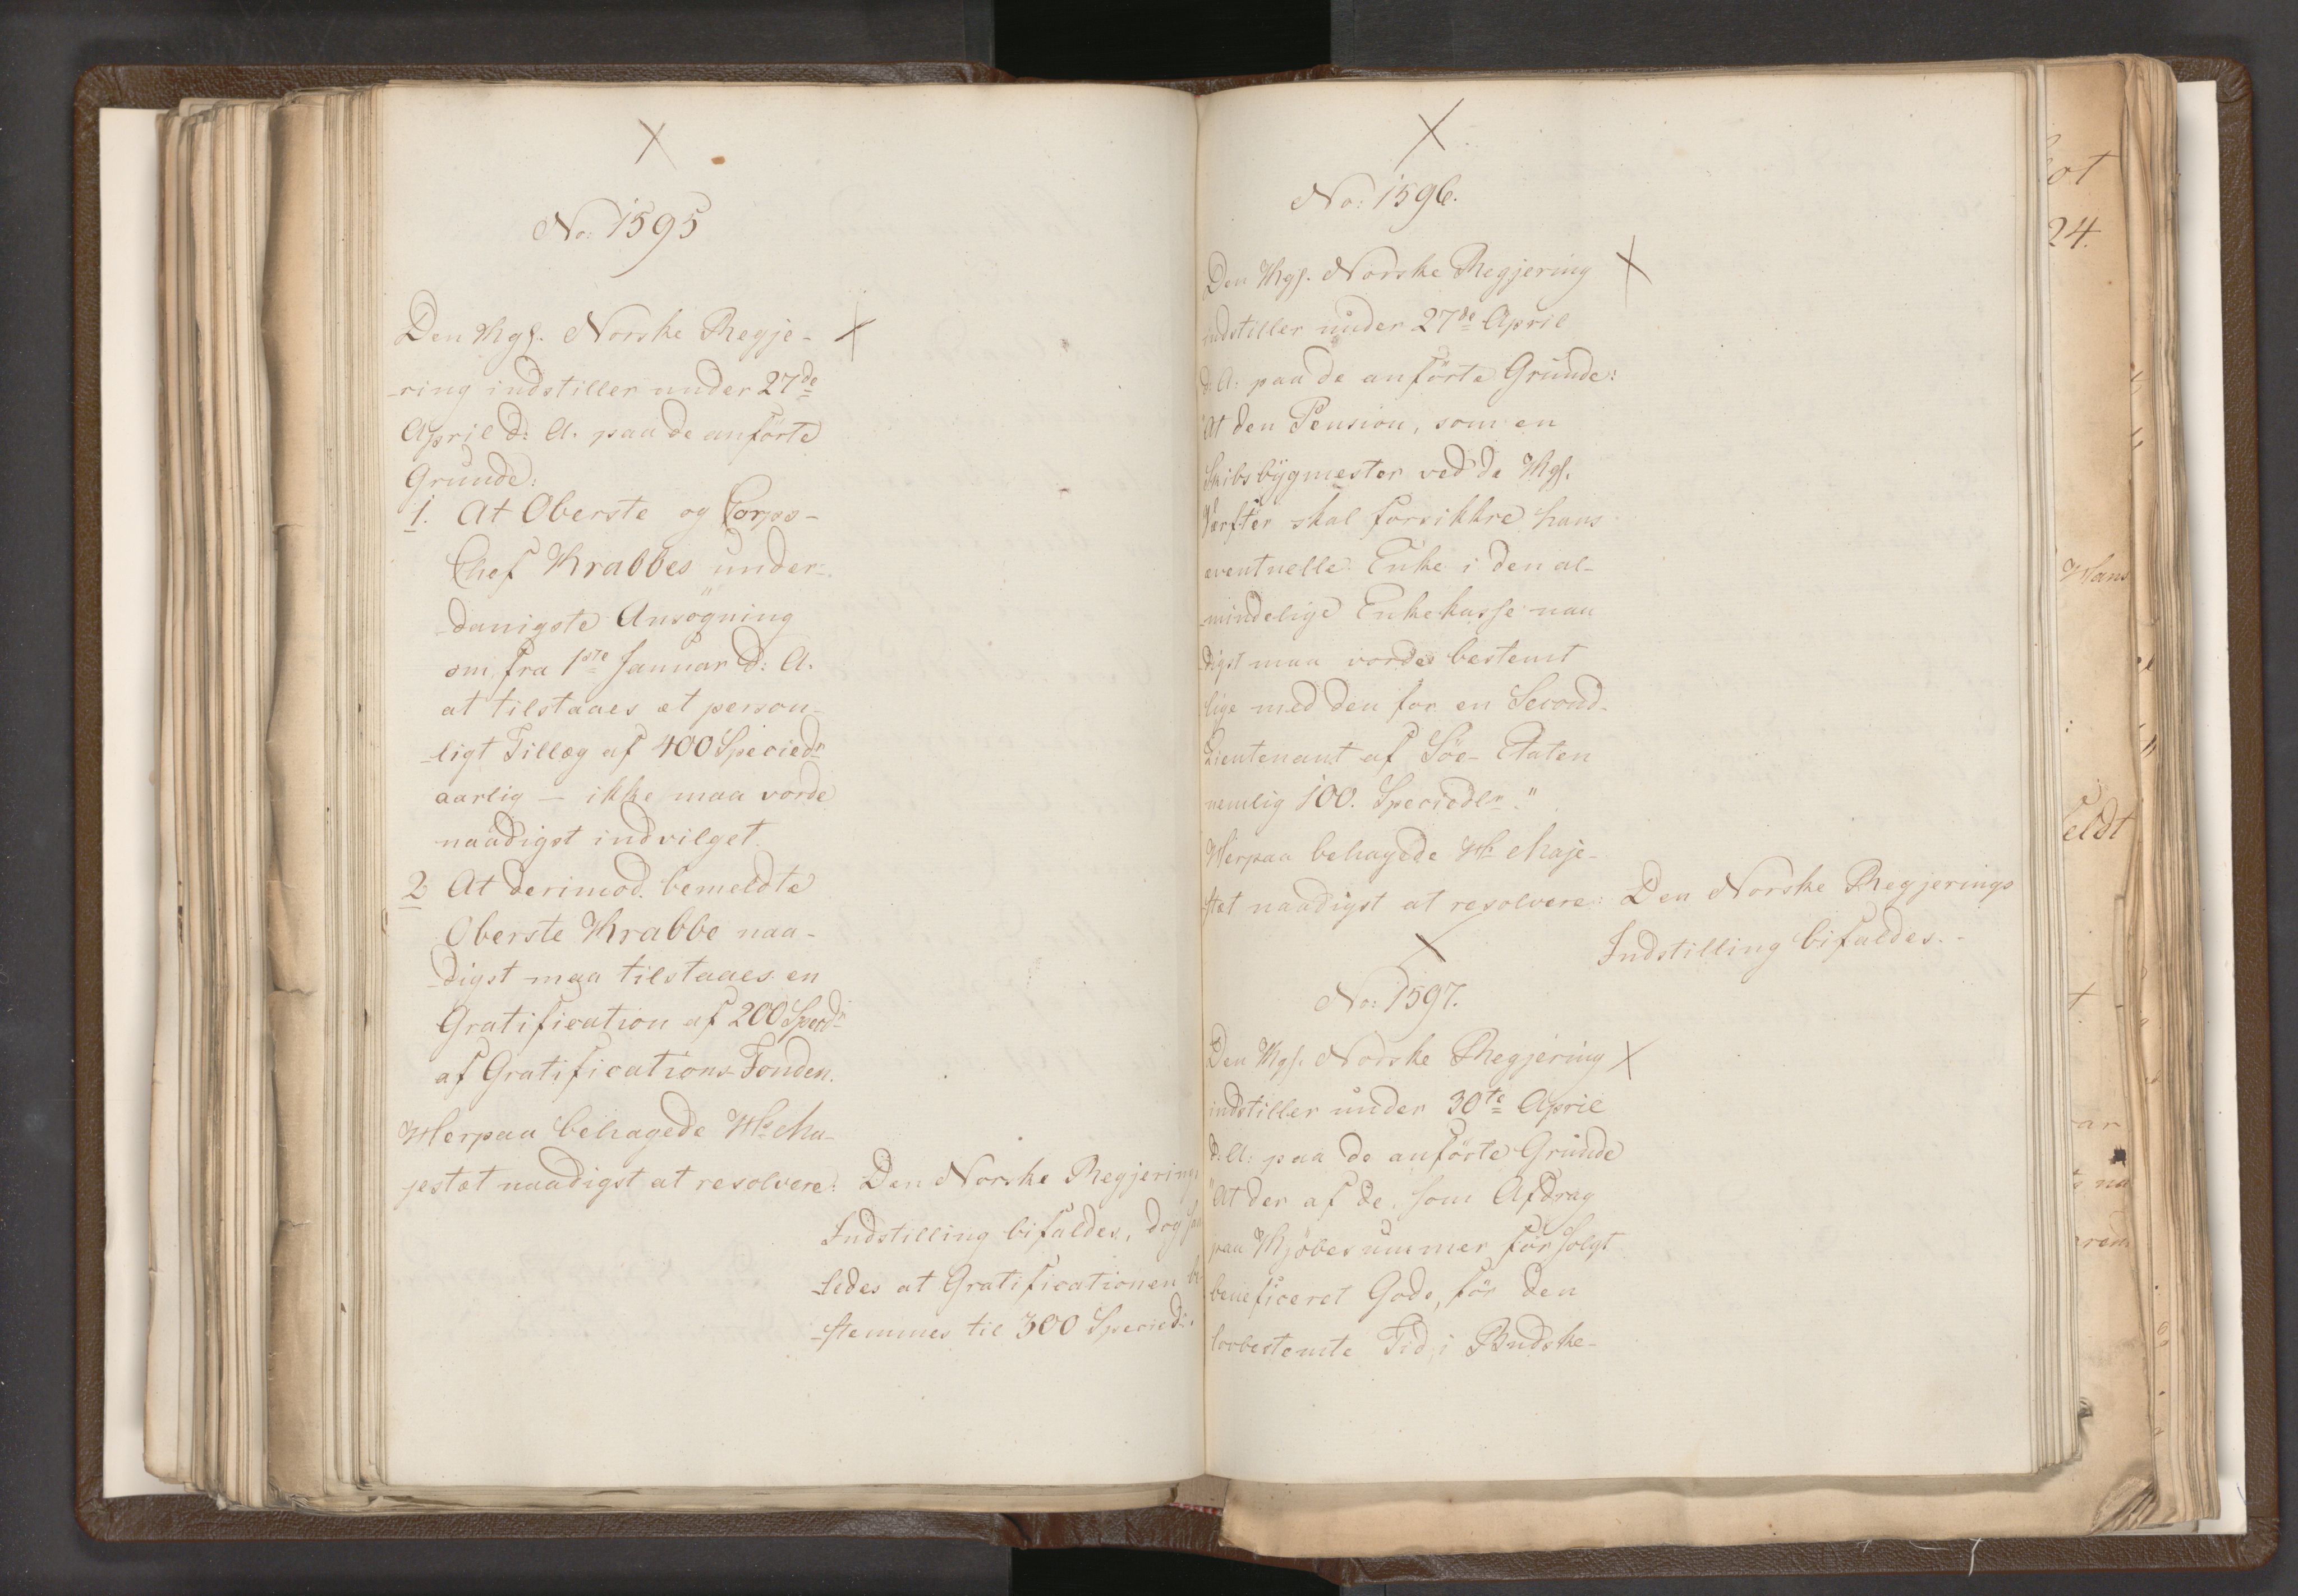 No: 1595
Den Kgl. Norske Regje-
-ring indstiller under 27de
April d: A. paa de anförte
Grunde:
1. At Oberste og Corps-
Chef Krabbes under-
-danigste Ansögning
om fra 1ste Januar d: A.
at tilstaaes et person-
-ligt Tillæg af 400 Speciedr
aarlig – ikke maa vorde
naadigst indvilget.
2 At derimod bemeldte
Oberste Krabbe naa-
-digst maa tilstaaes en
Gratification af 200 Specdr
af Gratifications-Fonden.
Herpaa behagede Hs Ma-
jestæt naadigst at resolvere: Den Norske Regjerings
Indstilling bifaldes, dog
-ledes at Gratificationen be-
-stemmes til 300 Specied.
No: 1596.
Den Kgl. Norske Regjering
indstiller under 27de April
d: A: paa de anförte Grunde:
"At den Pension, som en
Skibsbygmester ved de Kgl.
Værfter skal forsikkre hans
eventuelle Enke i den al-
-mindelige Enkekasse naa
digst maa vorde bestemt
lige med den for en Second-
Lieutenant af Söe-Etaten
nemlig 100. Speciedlr."
Herpaa behagede Hs Maje-
-stæt naadigst at resolvere: Den Norske Regjerings
Indstilling bifaldes.-
No: 1597.
Den Kgl. Norske Regjering
indstiller under 30te April
d: A: paa de anförte Grunde
"At der af de, som Afdrag
paa Kjöbesummer for solgt
beneficeret Gods, för den
lovbestemte Tid, i Budske-
ot
24.
Hans
eldt
ar
na